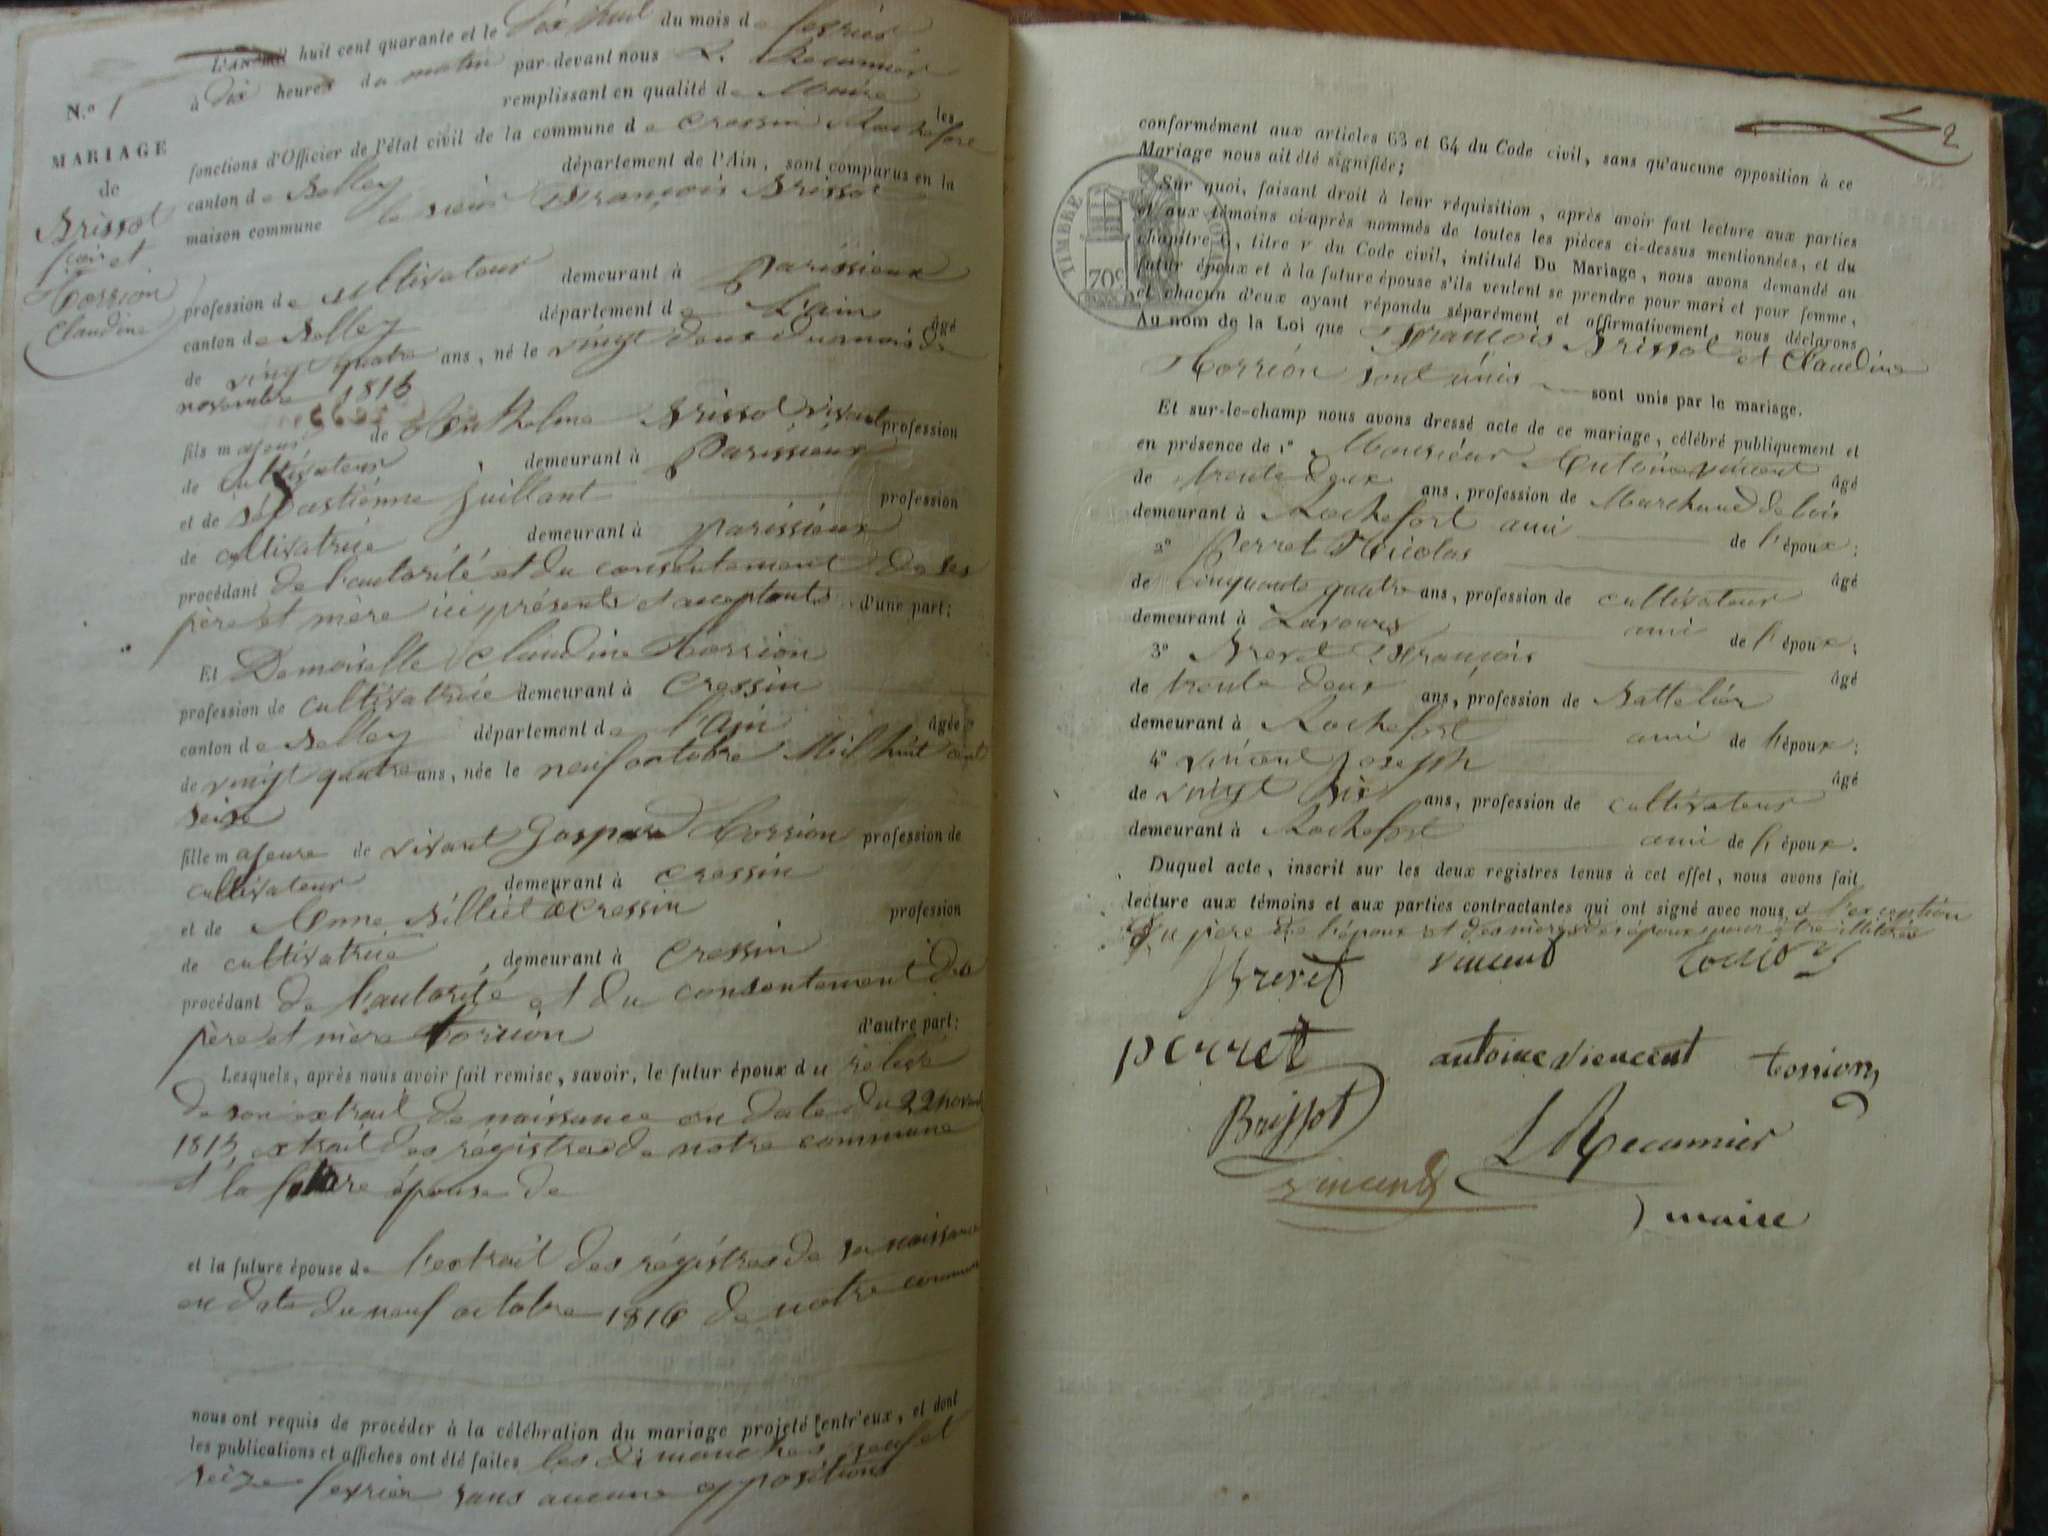 N.° 1
MARIAGE
de
Brissot
et
Torrion
Claudine
L'an mil huit cent quarante et le dix huit du mois de fevrier
à dix heures du matin par-devant nous L. Recamier
remplissant en qualité de Maire les
fonctions d'Officier de l'état civil de la commune de Cressin Rochefort
canton de Belley département de l'Ain, sont comparus en la
maison commune le sieur François Brissot
profession de cultivateur demeurant à Parissieux
canton de Belley département de L'ain âgé
de vingt quatre ans, né le vingt deux du mois de
novembre 1815
fils majeur de Anthelme Brissot vivant profession
de cultivateur demeurant à Parissieux
et de Sébastienne Juillant profession
de cultivatrice demeurant à Parissieux
procédant de l'autorité et du consentement de ses
père et mère ici présents et acceptants d'une part;
Et Demoiselle Claudine Torrion
profession de cultivatrice demeurant à Cressin
canton de Belley département de l'Ain âgée
de vingt quatre ans, née le neuf octobre Mil huit cent
seize
fille majeure de vivant Gaspard Torrion profession de
cultivateur demeurant à Cressin
et de Anne Billiet de Cressin profession
de cultivatrice, demeurant à Cressin
procédant de l'autorité et du consentement des
père et mère Torrion d'autre part;
Lesquels, après nous avoir fait remise, savoir, le futur époux du relevé
de son extrait de naissance en date du 22 novemb
1815 extrait des régistres de notre commune
et la future épouse de
et la future épouse de l'extrait des régistres de sa naissance
en date du neuf octobre 1816 de notre commune
nous ont requis de procéder à la célébration du mariage projeté entr'eux, et dont
les publications et affiches ont été faites les dimanches neuf et
seize fevrier sans aucune oppositions
2
conformément aux articles 63 et 64 du Code civil, sans qu'aucune opposition à ce
Mariage nous ait été signifiée;
TIMBRE ROYAL
70c
Sur quoi, faisant droit à leur réquisition, après avoir fait lecture aux parties
et aux témoins ci-après nommés de toutes les pièces ci-dessus mentionnées, et du
chapitre 6, titre v du Code civil, intitulé Du Mariage, nous avons demandé au
futur époux et à la future épouse s'ils veulent se prendre pour mari et pour femme,
et chacun d'eux ayant répondu séparément et affirmativement, nous déclarons
Au nom de la Loi que François Brissot et Claudine
Torrion sont unis sont unis par le mariage.
Et sur-le-champ nous avons dressé acte de ce mariage, célébré publiquement et
en présence de 1° Monsieur Antoine vincent âgé
de trente deux ans, profession de Marchand de bois
demeurant à Rochefort ami de l'époux;
2° Perret Nicolas âgé
de cinquante quatre ans, profession de cultivateur
demeurant à Lavours ami de l'époux;
3° Brevet François âgé
de trente deux ans, profession de Battelier
demeurant à Rochefort ami de l'époux;
4° vincent Joseph âgé
de vingt six ans, profession de cultivateur
demeurant à Rochefort ami de l'époux.
Duquel acte, inscrit sur les deux registres tenus à cet effet, nous avons fait
lecture aux témoins et aux parties contractantes qui ont signé avec nous, à l'exception
du père de l'époux et des mères des époux pour être illitérés
Brevet vincent
perret antoine viencent torrion
Brissot L Recamier
vincent
maire